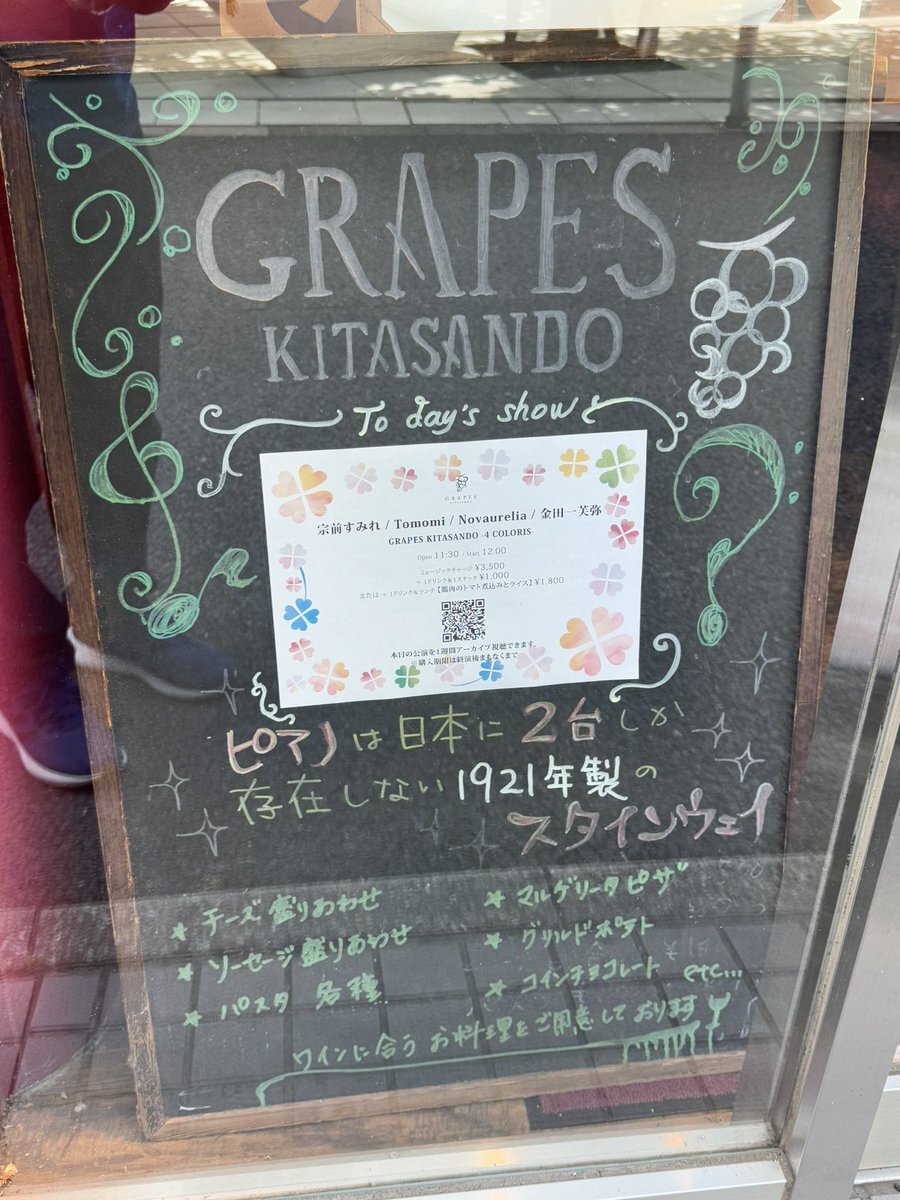 GRAPES
KITASANDO
To day's show
GRAPES
KITASANDO
宗前すみれ / Tomomi / Novaurelia / 金田一芙弥
GRAPES KITASANDO -4 COLORIS-
Open 11:30 / Start 12:00
ミュージックチャージ ¥3,500
+ 1ドリンク&1スナック ¥1,000
または + 1ドリンク&ランチ【鶏肉のトマト煮込みとライス】¥1,800
本日の公演を1週間アーカイブ視聴できます
※購入期限は終演後まもなくまで
ピアノは日本に2台しか
存在しない1921年製の
スタインウェイ
★ チーズ盛りあわせ
★ ソーセージ盛りあわせ
★ パスタ 各種
★ マルゲリータピザ
★ グリルドポテト
★ コインチョコレート etc...
ワインに合うお料理をご用意しております